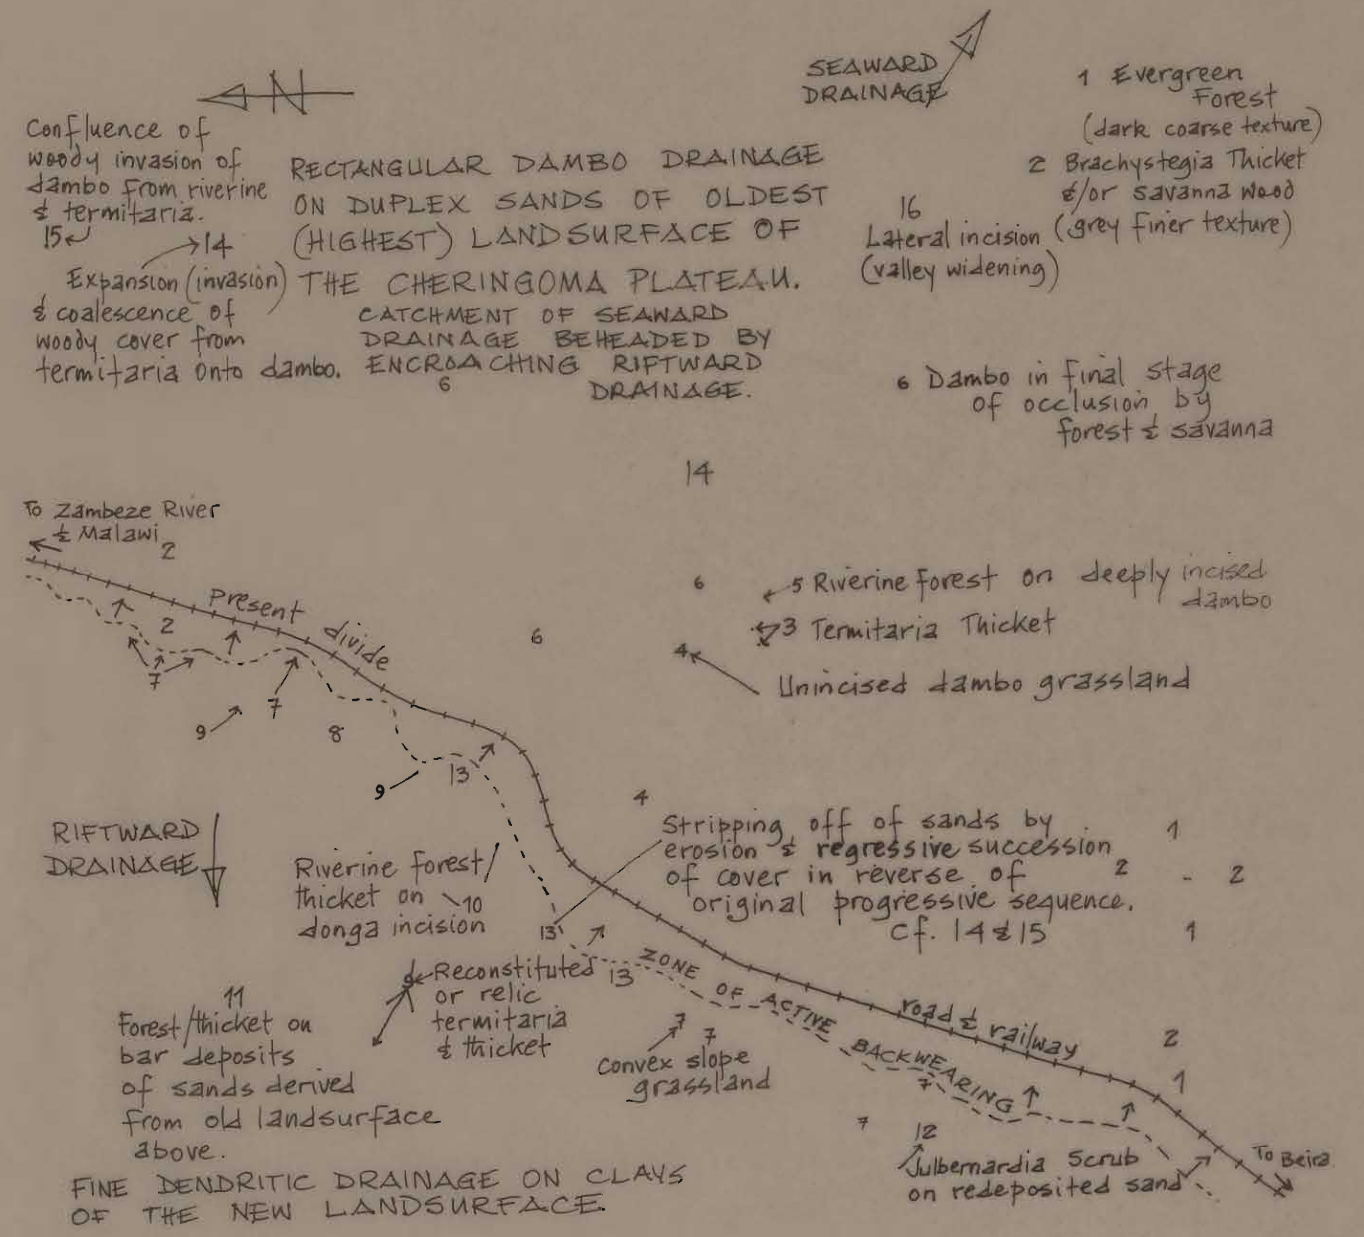 N
SEAWARD
DRAINAGE
1 Evergreen
Forest
(dark coarse texture)
2 Brachystegia Thicket
&/or savanna wood
(grey finer texture)
Confluence of
woody invasion of
dambo from riverine
& termitaria.
15
14
Expansion (invasion)
& coalescence of
woody cover from
termitaria onto dambo.
RECTANGULAR DAMBO DRAINAGE
ON DUPLEX SANDS OF OLDEST
(HIGHEST) LANDSURFACE OF
THE CHERINGOMA PLATEAU.
CATCHMENT OF SEAWARD
DRAINAGE BEHEADED BY
ENCROACHING RIFTWARD
6
DRAINAGE.
16
Lateral incision
(valley widening)
6 Dambo in final stage
of occlusion by
forest & savanna
14
To Zambeze River
& Malawi
2
Present divide
2
7
7
9
8
6
6
5 Riverine Forest on deeply incised
dambo
3 Termitaria Thicket
4
Unincised dambo grassland
9
13
4
Stripping off of sands by
erosion & regressive succession
of cover in reverse of
original progressive sequence.
cf. 14 & 15
1
2 - 2
1
RIFTWARD
DRAINAGE
Riverine forest/
thicket on 10
donga incision
13
Reconstituted
or relic
termitaria
& thicket
13
ZONE OF ACTIVE BACKWEARING
road & railway
11
Forest/thicket on
bar deposits
of sands derived
from old landsurface
above.
7
7
Convex slope
grassland
7
2
1
7
12
Julbernardia Scrub
on redeposited sand
To Beira
FINE DENDRITIC DRAINAGE ON CLAYS
OF THE NEW LANDSURFACE.